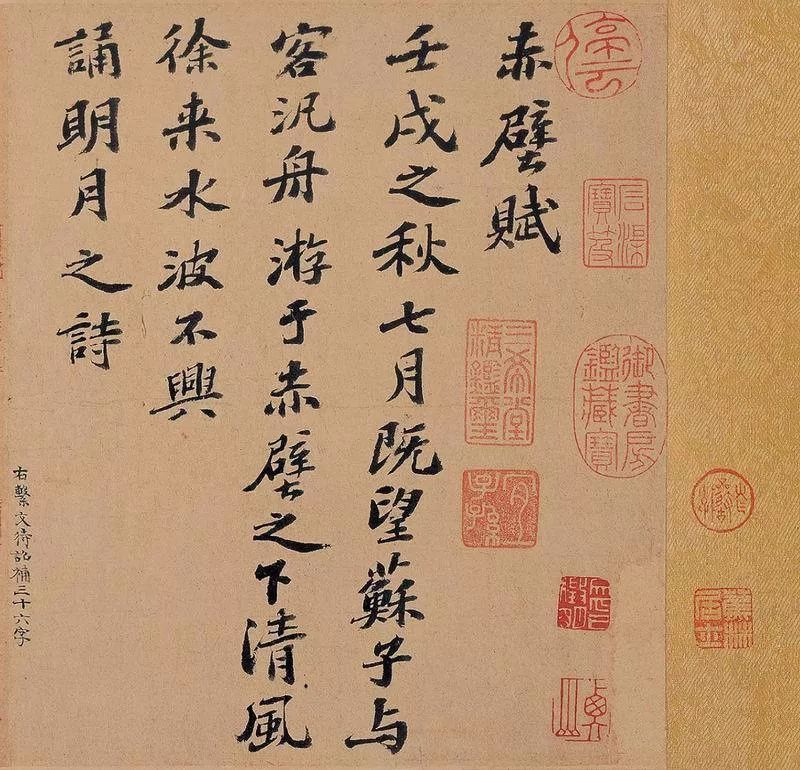 御書房鑑藏寶
停雲
赤壁賦
三希堂精鑑璽
宜子孫
壬戌之秋七月既望蘇子与
客汎舟游于赤壁之下清風
徐来水波不興
誦明月之詩
右繫文待詔補三十六字